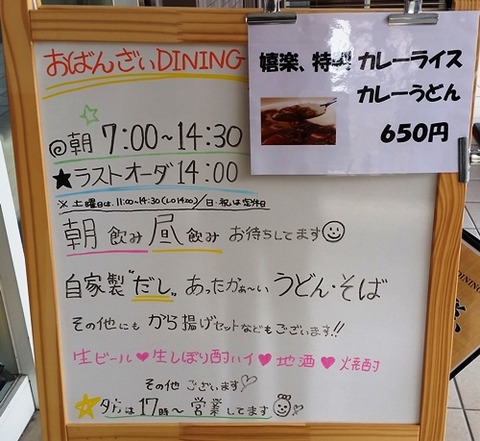 おばんざいDINING
嬉楽、特製 カレーライス
カレーうどん
650円
◎朝 7:00~14:30
★ラストオーダ 14:00
※土曜日は、11:00~14:30(LO14:00)/日・祝は定休日
朝飲み昼飲み お待ちしてます
自家製"だし" あったかぁ~い うどん・そば
その他にも から揚げセットなどもございます!!
生ビール♥生しぼり酎ハイ♥地酒♥焼酎
その他 ございます♡
夕方は 17時~ 営業してます
DINING